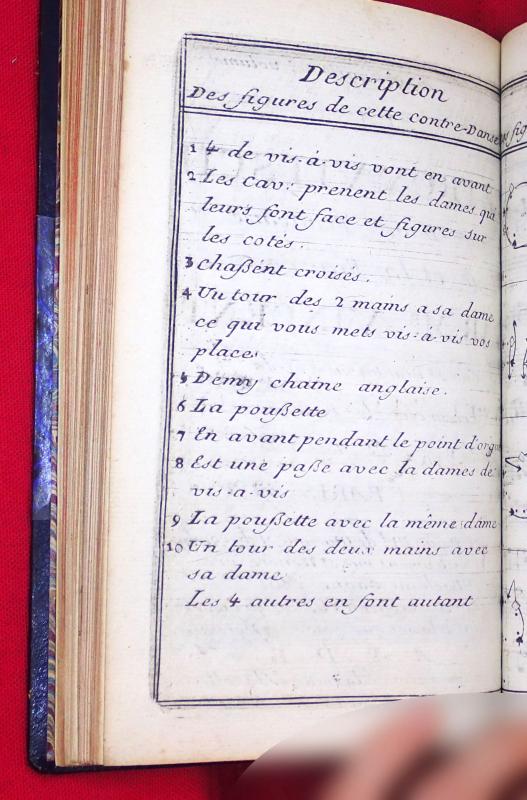 Description
Des figures de cette contre-Danse
1 4 de vis-à-vis vont en avant
2 Les Cav: prenent les dames qui
leurs font face et figures sur
les cotés.
3 chaßént croisés.
4 Un tour des 2 mains a sa dame
ce qui vous mets vis-à-vis vos
places
5 Demy chaine anglaise.
6 La poußette
7 En avant pendant le point d'orgu
8 Est une paße avec la dames de
vis-a-vis
9 La poußette avec la même dame
10 Un tour des deux mains avec
sa dame
Les 4 autres en font autant